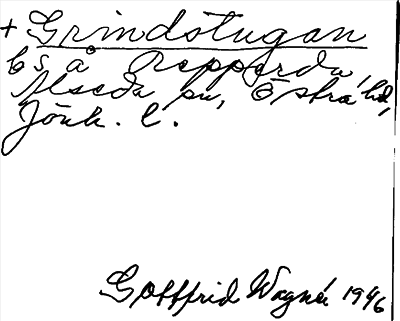 + Grindstugan
bs å Repperda,
Alseda sn, Östra hd,
Jönk. l.
Gottfrid Wagnér 1946